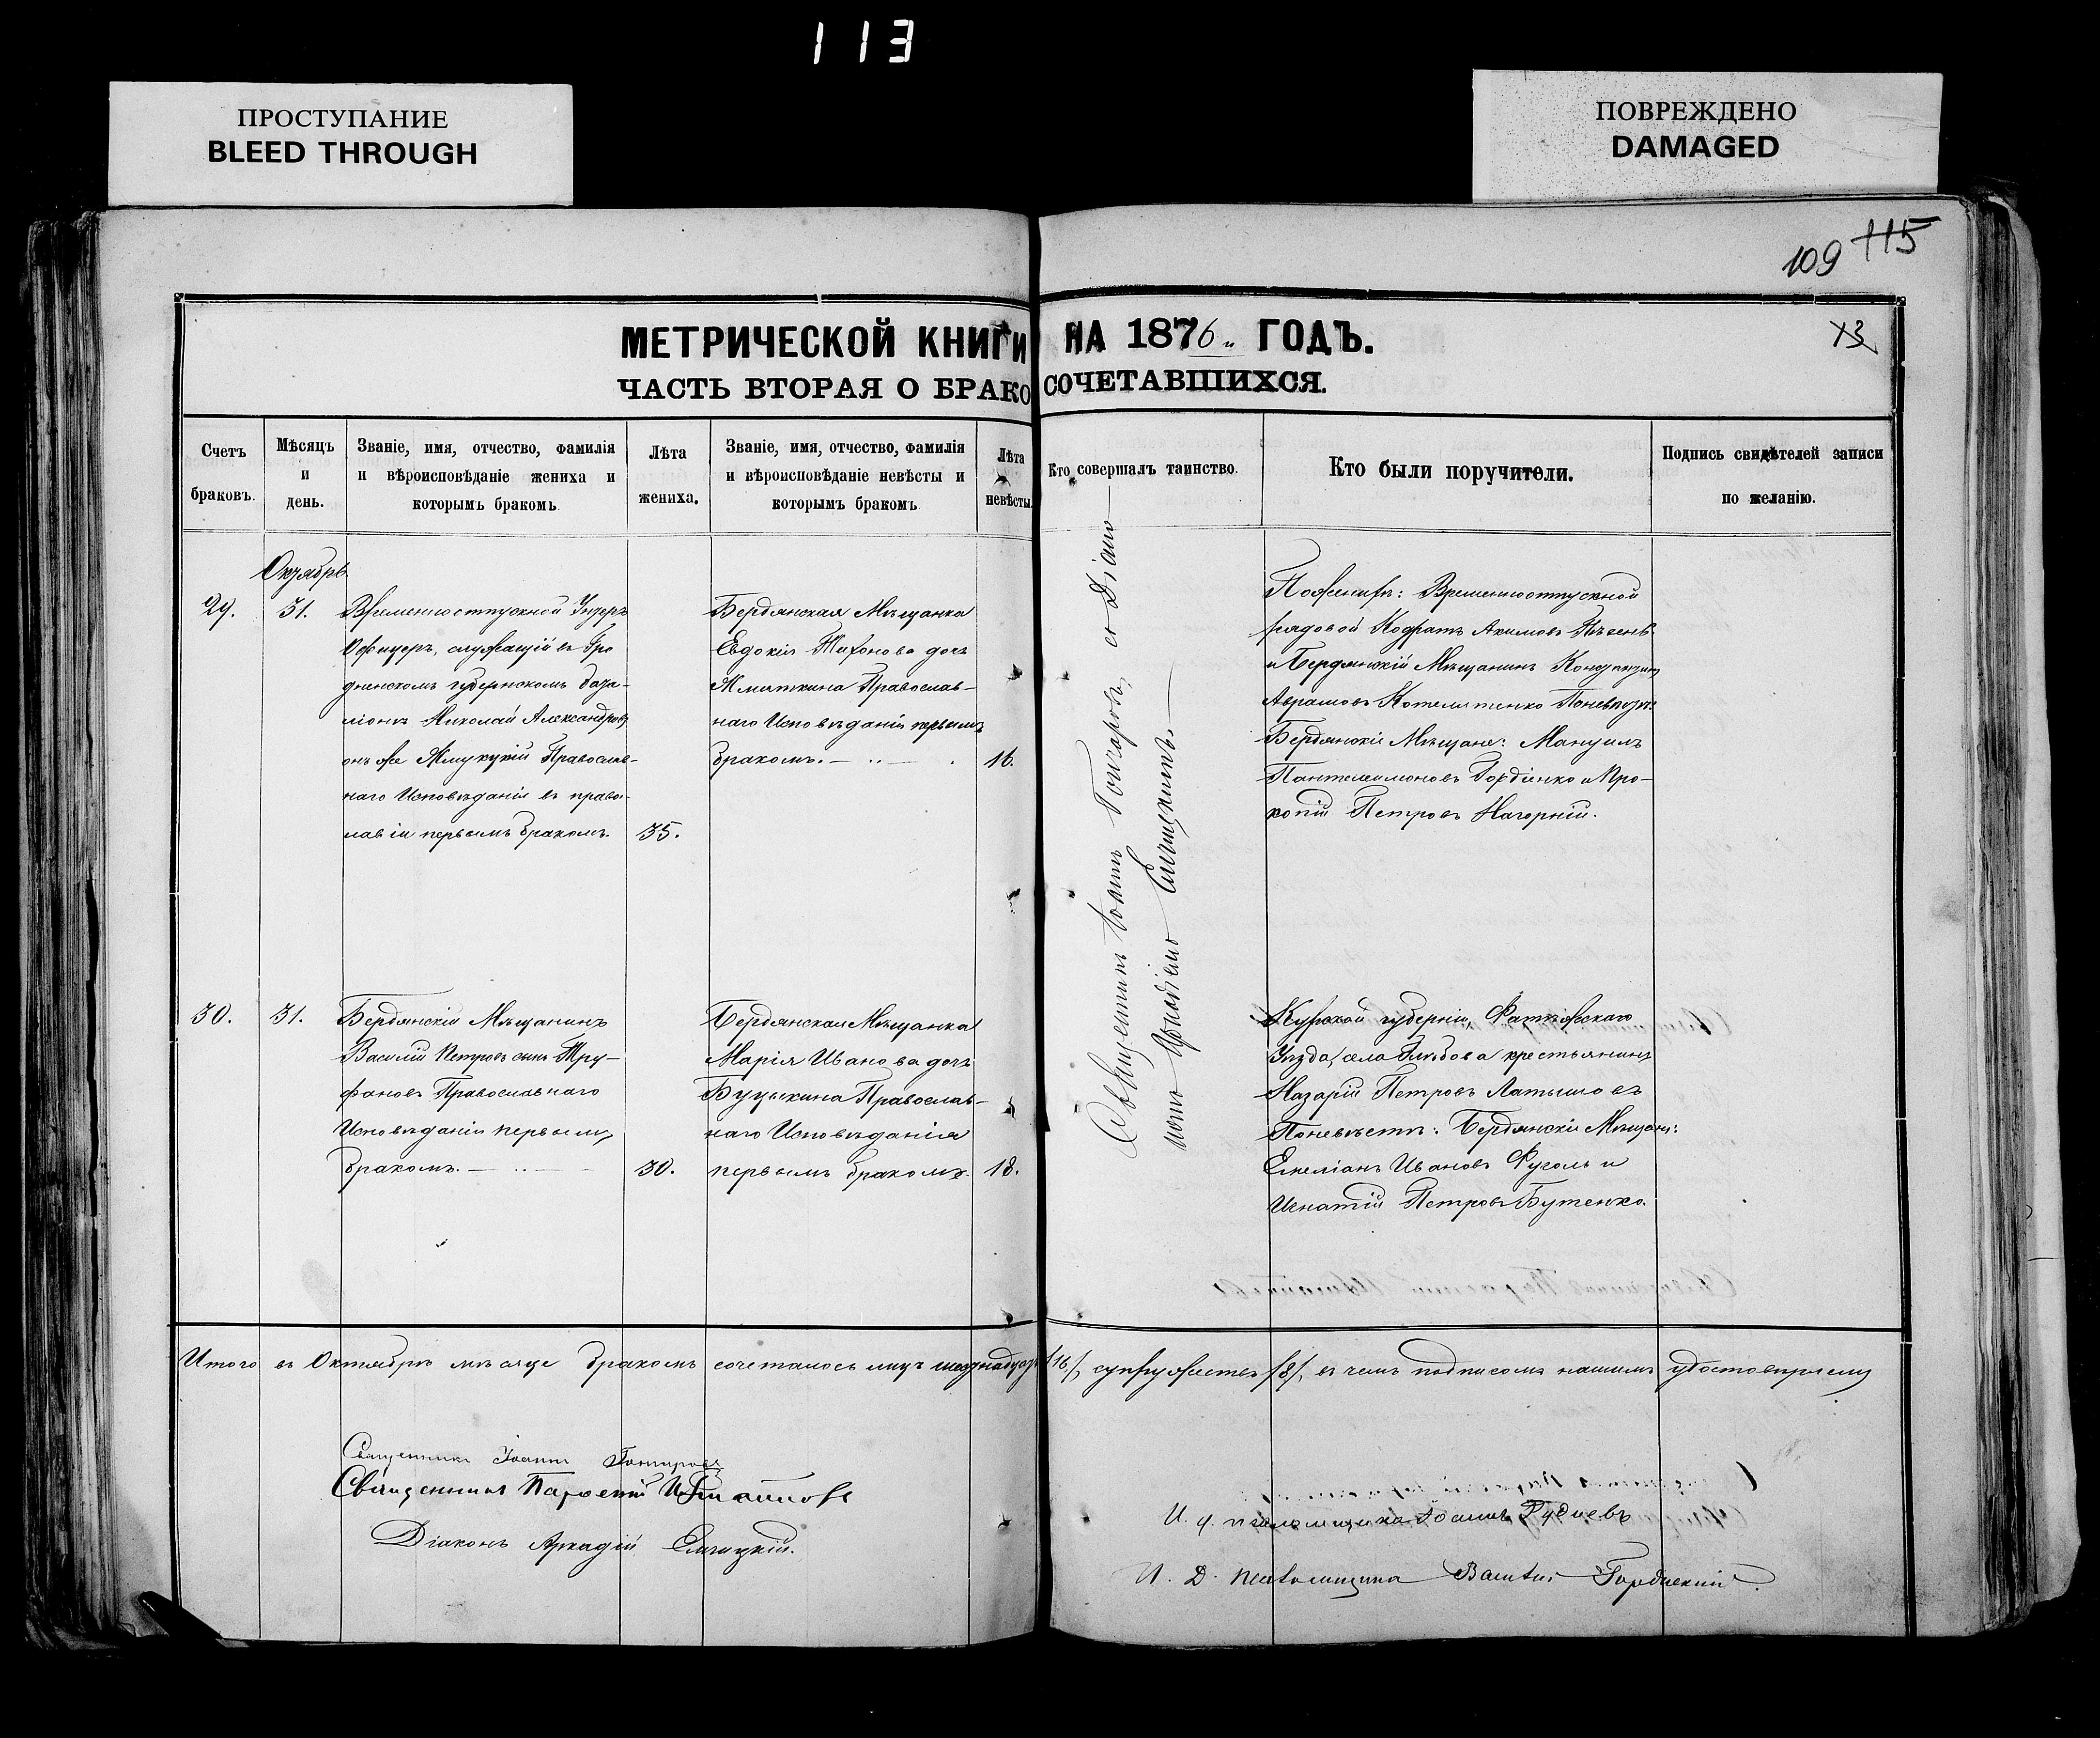 113
ПРОСТУПАНИЕ
BLEED THROUGH
ПОВРЕЖДЕНО
DAMAGED
109 115
МЕТРИЧЕСКОЙ КНИГИ НА 1876 ГОДЪ.
13
ЧАСТЬ ВТОРАЯ О БРАКОСОЧЕТАВШИХСЯ.
Счетъ
браковъ.
Мѣсяцъ
и
день.
Званіе, имя, отчество, фамилія
и вѣроисповѣданіе жениха и
которымъ бракомъ
Лѣта
жениха.
Званіе, имя, отчество, фамилія
и вѣроисповѣданіе невѣсты и
которымъ бракомъ
Лѣта
невѣсты.
Кто совершалъ таинство.
Кто были поручители.
Подпись свидѣтелей записи
по желанію.
Октябрь
29.
31.
Временноотпускной Унтеръ
Офицеръ, служащій въ Гро
дненскомъ губернскомъ бата-
ліонѣ Николай Александровъ
онъ же Православ-
наго Исповѣданія въ право-
славіи первымъ бракомъ.
35.
Бердянская Мѣщанка
Евдокія Тихонова дочь
Православ-
наго Исповѣданія первымъ
бракомъ.
16.
Священникъ Іоаннъ Гончаровъ, съ Діако
номъ Аркадіемъ Елчицкимъ.
По женихѣ: Временноотпускной
рядовой Кодратъ Акимовъ
и Бердянскій Мѣщанинъ
Аврамовъ По невѣстѣ:
Бердянскіе Мѣщане: Мануилъ
Пантелимоновъ Гордіенко и Про-
копій Петровъ Нагорній.
30.
31.
Бердянскій Мѣщанинъ
Василій Петровъ сынъ Тру-
фановъ Православнаго
Исповѣданія первымъ
бракомъ.
30.
Бердянская Мѣщанка
Марія Иванова дочь
Православ-
наго Исповѣданія
первымъ бракомъ.
18.
Курской губерніи, Фатежскаго
Уѣзда, села Глѣбова крестьянинъ
Назарій Петровъ Латышовъ
По невѣстѣ: Бердянскіе Мѣщане:
Емеліанъ Ивановъ и
Игнатій Петровъ Бутенко.
Итого въ Октябрѣ мѣсяце бракомъ сочеталось лицъ шестнадцать /16/, супружествъ /8/, въ чемъ подписомъ нашимъ удостовѣряемъ
Священникъ Іоаннъ Гончаровъ
Священникъ
Діаконъ Аркадій Елчицкій.
И. д. псаломщика Іоаннъ Рудневъ
И. Д. псаломщика